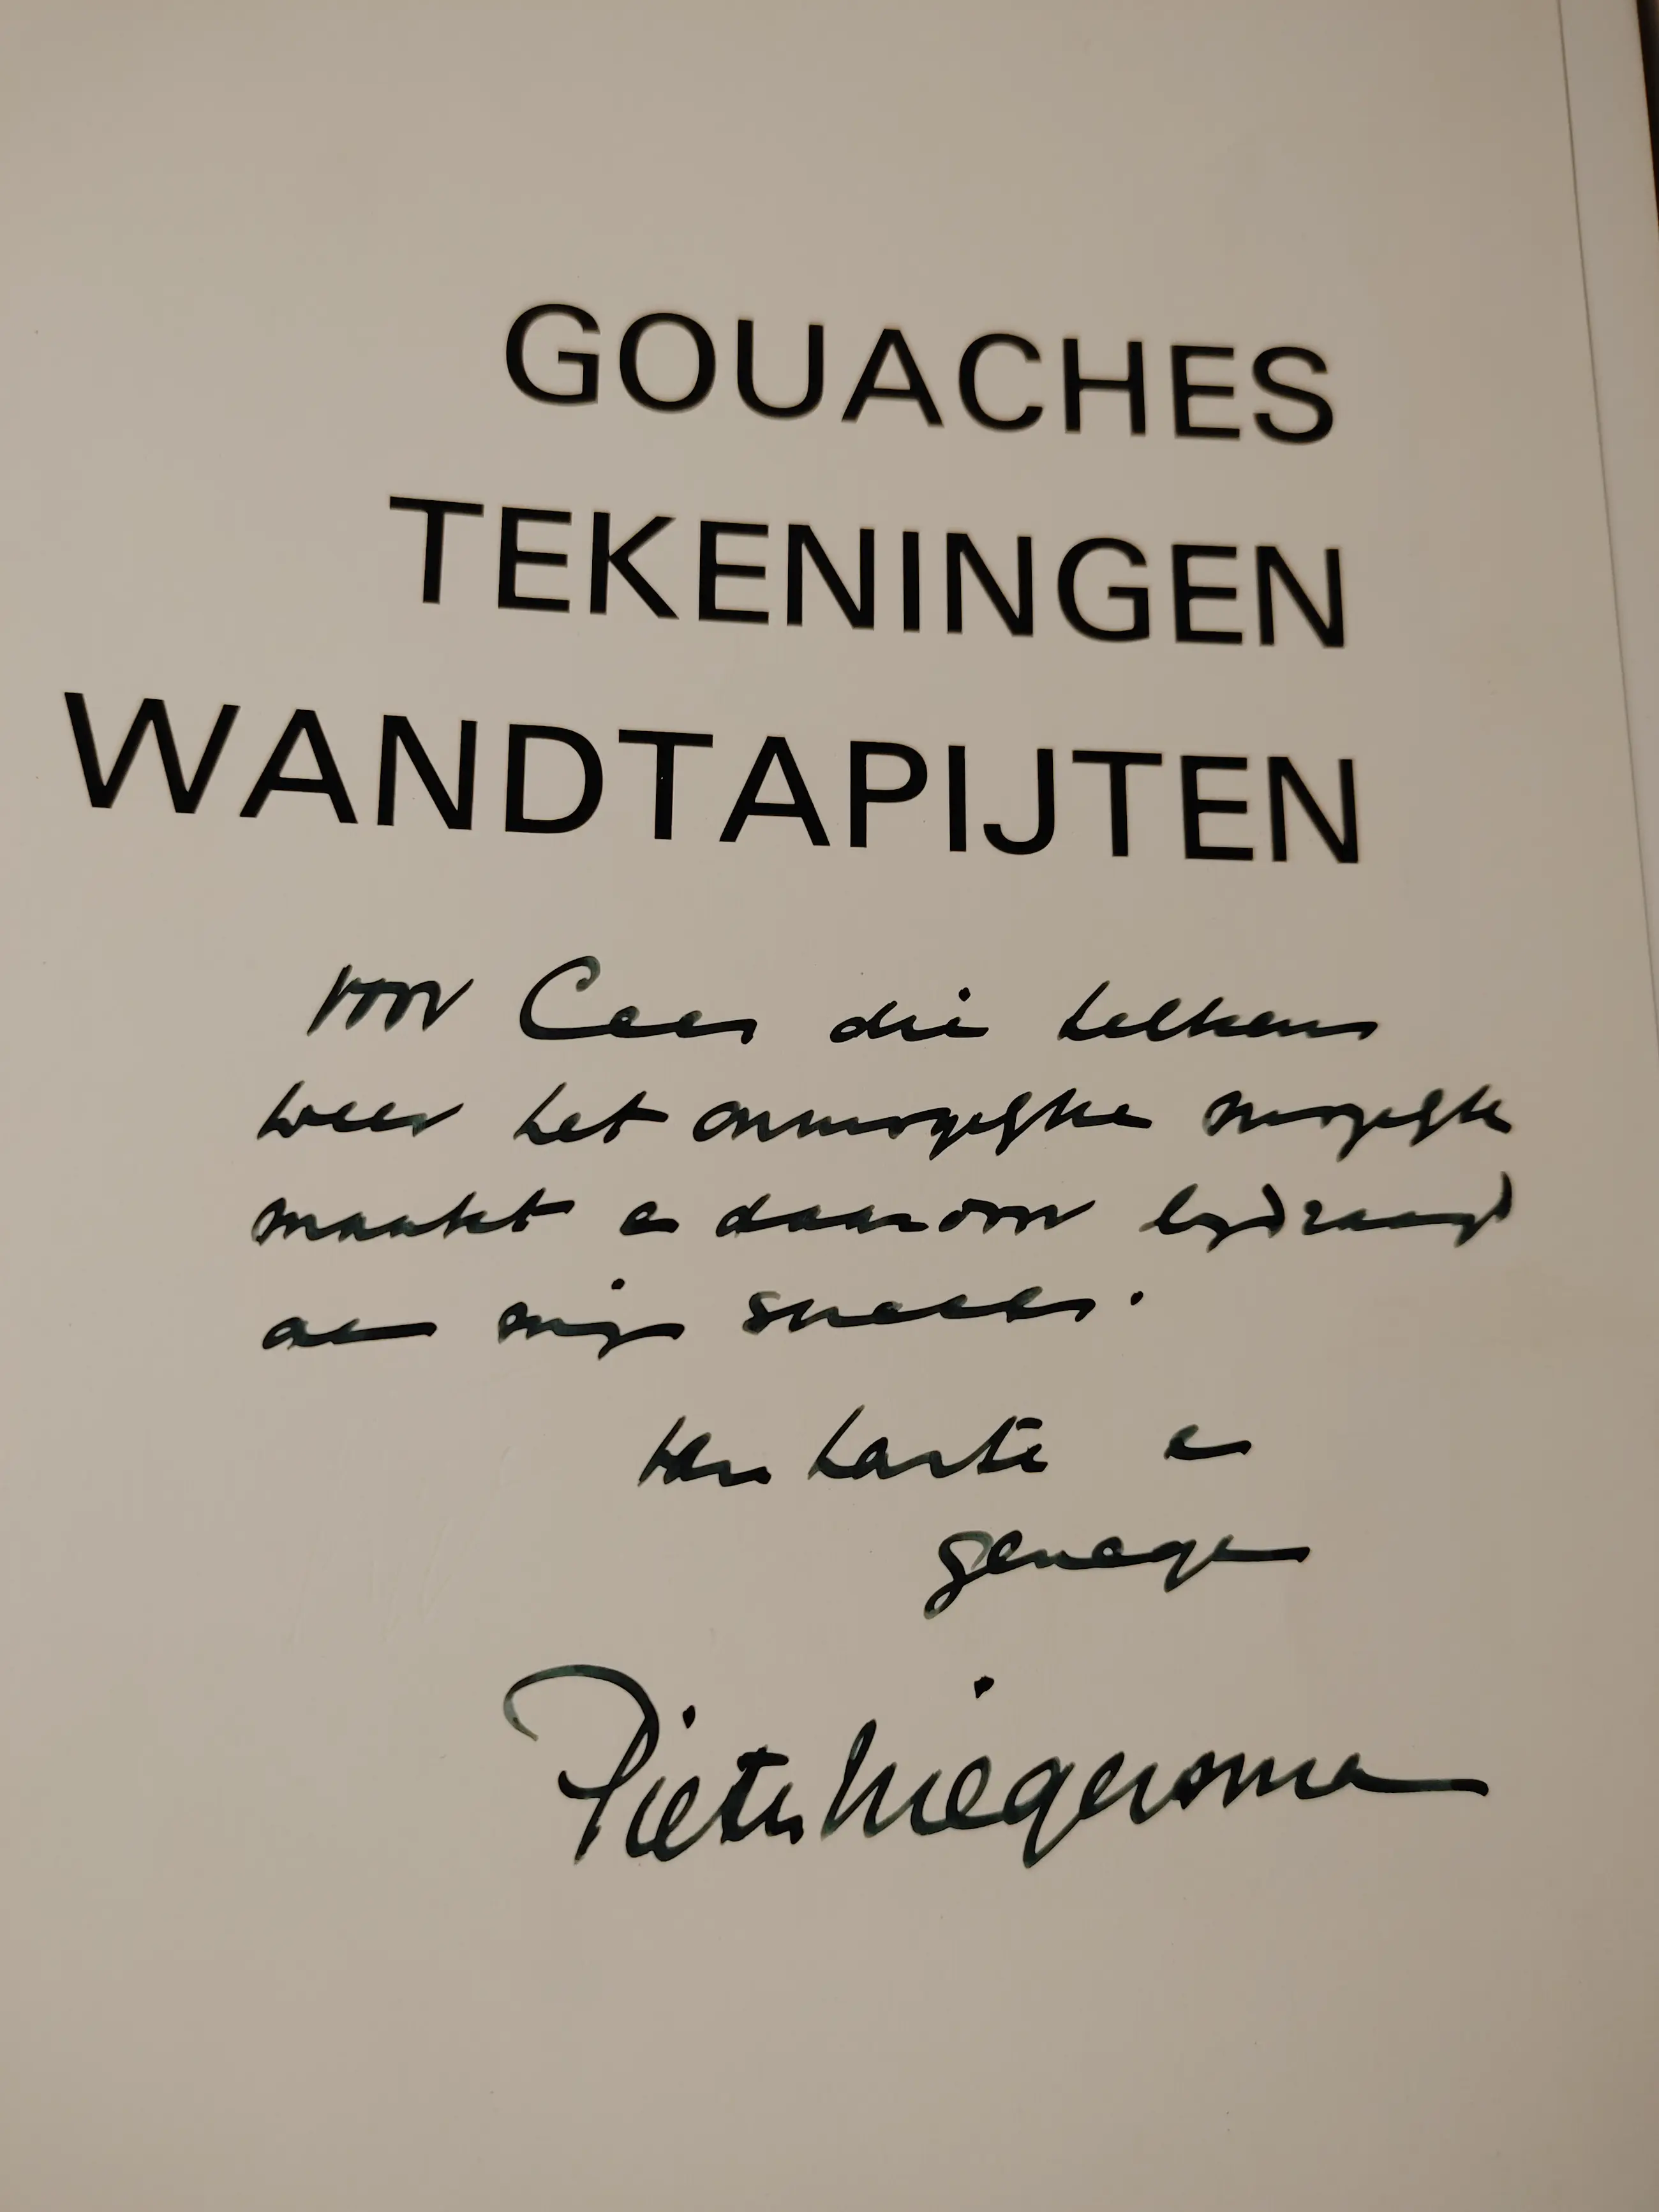 GOUACHES
TEKENINGEN
WANDTAPIJTEN
voor Cees die telkens
weer het onmogelijke mogelijk
maakt en daardoor bijdraagt
aan mijn succes.
van harte en
genegen
Pieter Wiegersma